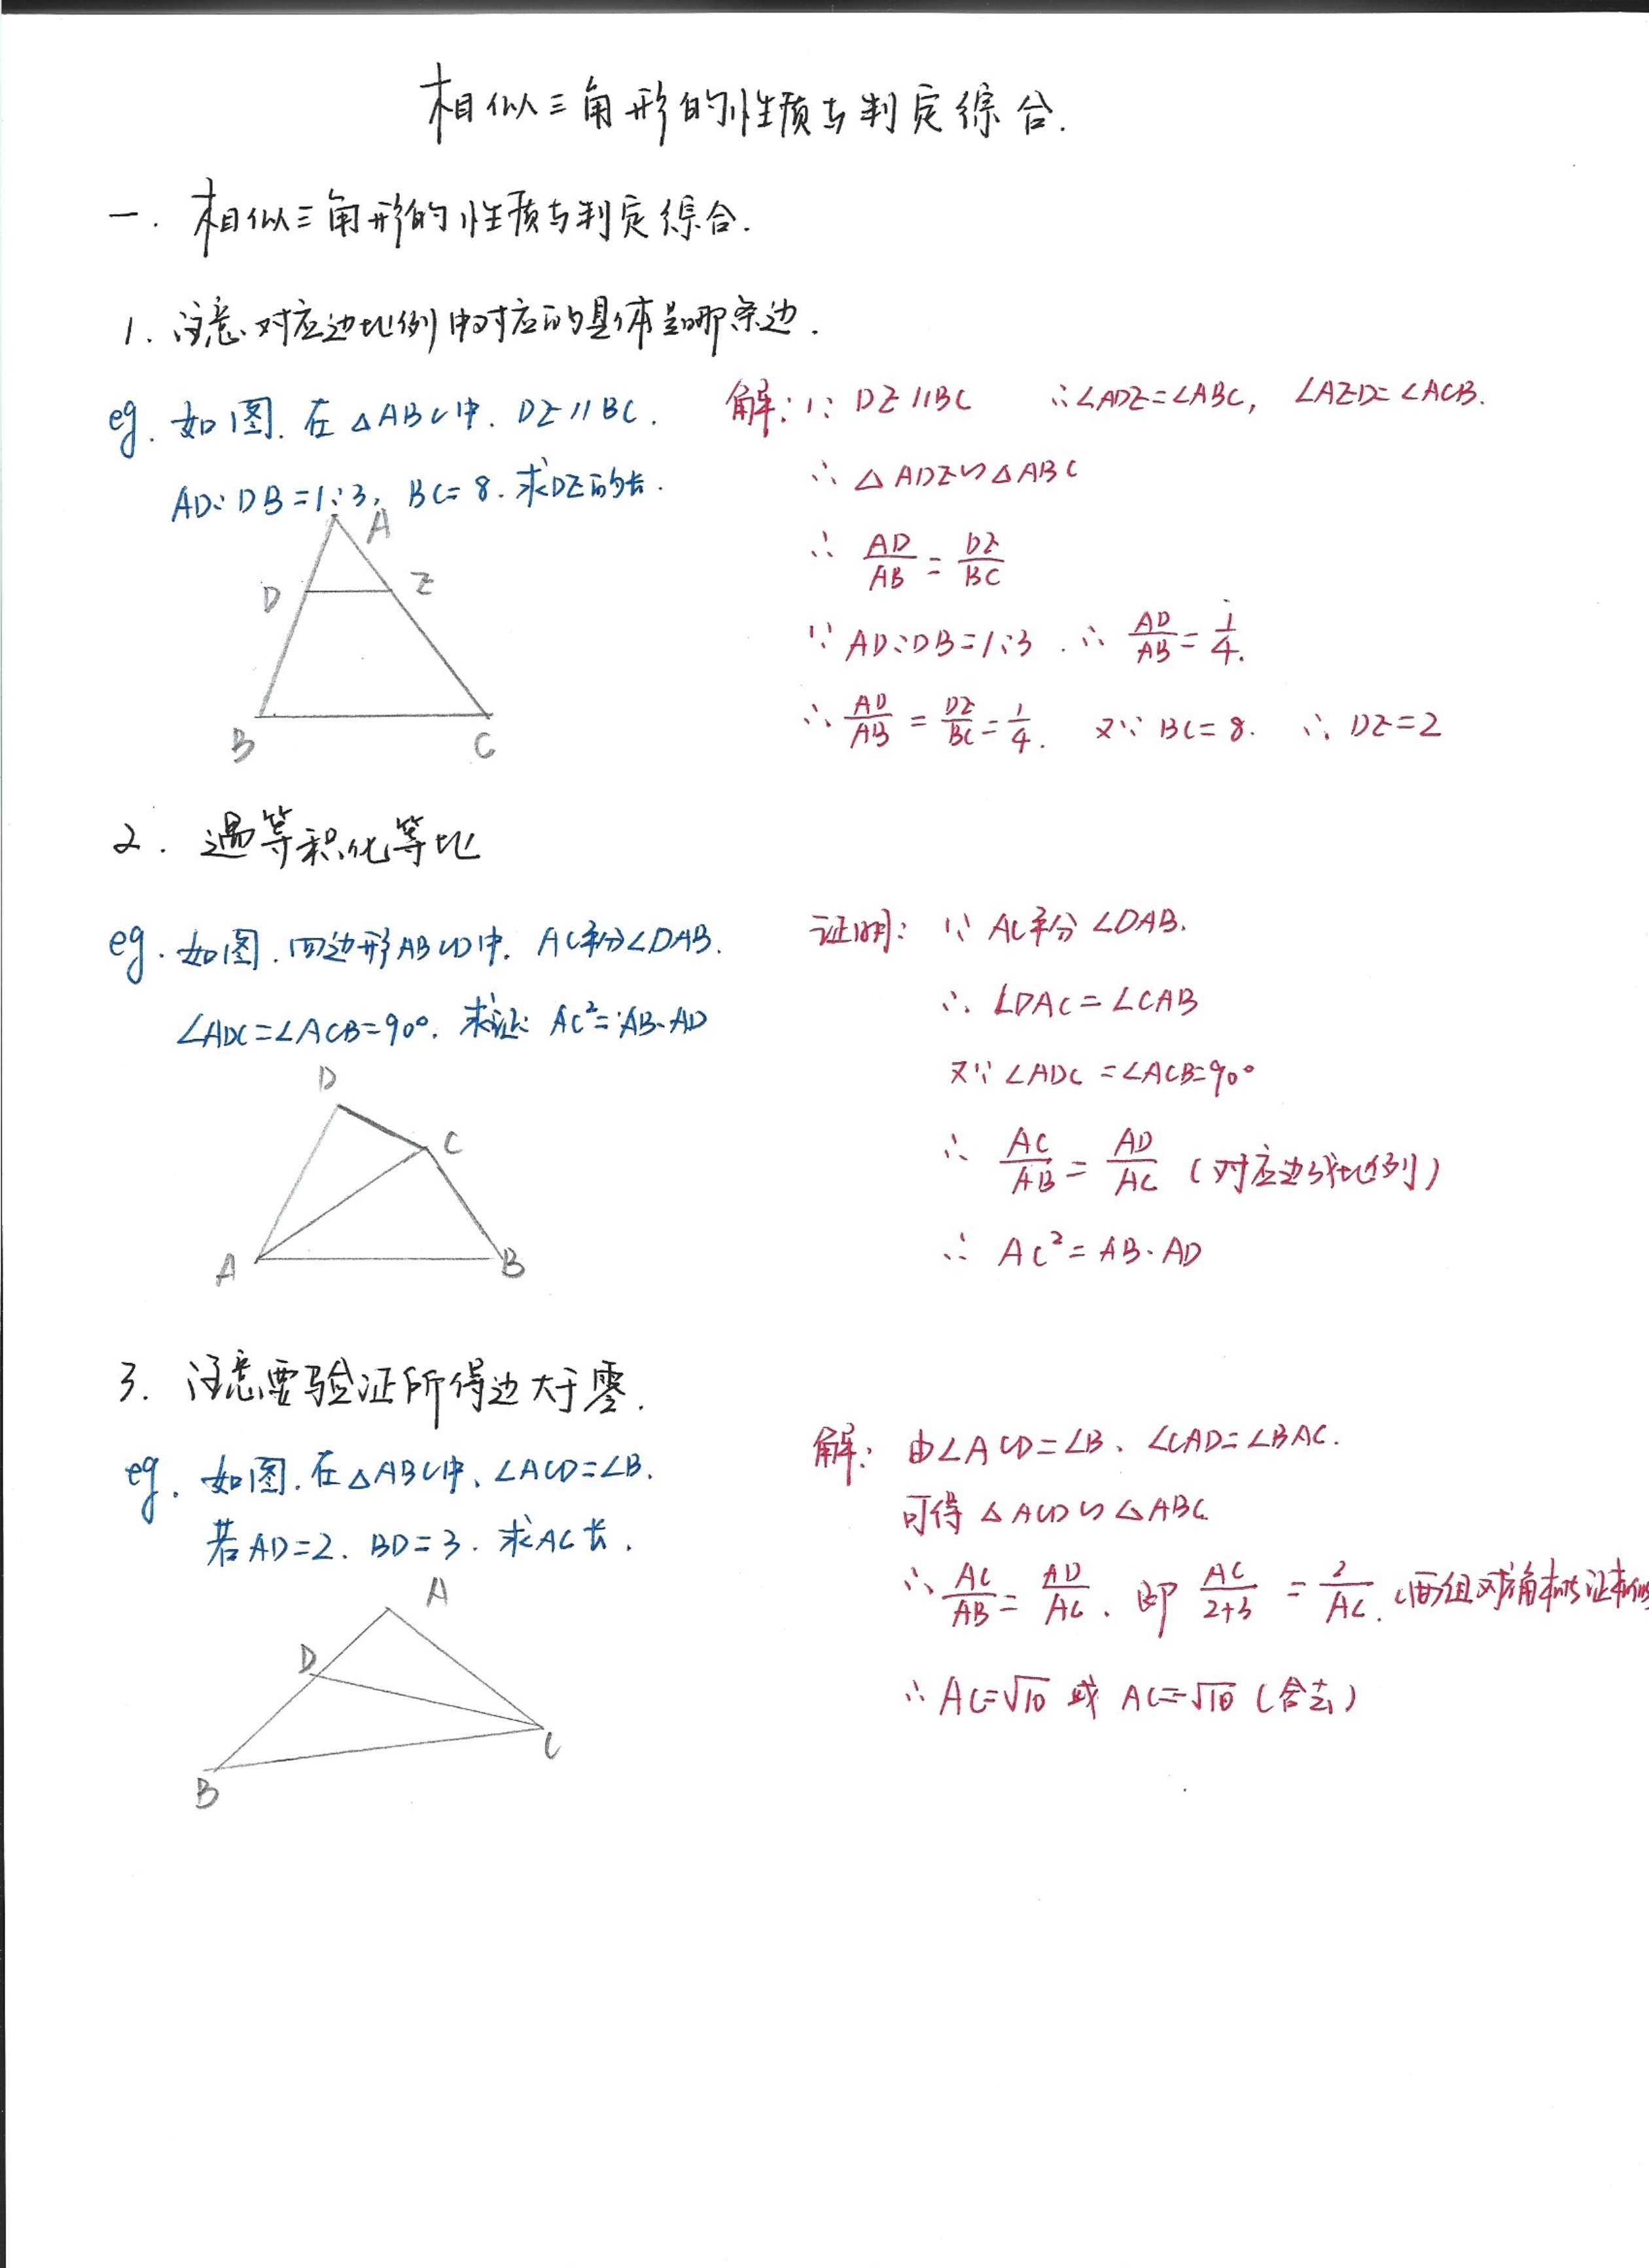 相似三角形的性质与判定综合.
一. 相似三角形的性质与判定综合.
1. 注意对应边比例中对应的具体是哪条边.
eg. 如图. 在△ABC中. DE//BC.
AD:DB=1:3, BC=8. 求DE的长.
A
D E
B C
解: ∵ DE//BC ∴∠ADE=∠ABC, ∠AED=∠ACB.
∴ △ADE∽△ABC
∴ AD/AB = DE/BC
∵ AD:DB=1:3 . ∴ AD/AB = 1/4.
∴ AD/AB = DE/BC = 1/4. 又∵ BC=8. ∴ DE=2
2. 遇等积化等比
eg. 如图. 四边形ABCD中. AC平分∠DAB.
∠ADC=∠ACB=90°. 求证: AC²=AB·AD
D
C
A B
证明: ∵ AC平分∠DAB.
∴ ∠DAC=∠CAB
又∵ ∠ADC=∠ACB=90°
∴ AC/AB = AD/AC (对应边成比例)
∴ AC²=AB·AD
3. 注意要验证所得边大于零.
eg. 如图. 在△ABC中、∠ACD=∠B.
若AD=2. BD=3. 求AC长.
A
D
C
B
解: 由∠ACD=∠B、∠CAD=∠BAC.
可得 △ACD∽△ABC
∴ AC/AB = AD/AC. 即 AC/2+3 = 2/AC. (两组对应角相等证相似
∴ AC=√10 或 AC=-√10 (舍去)